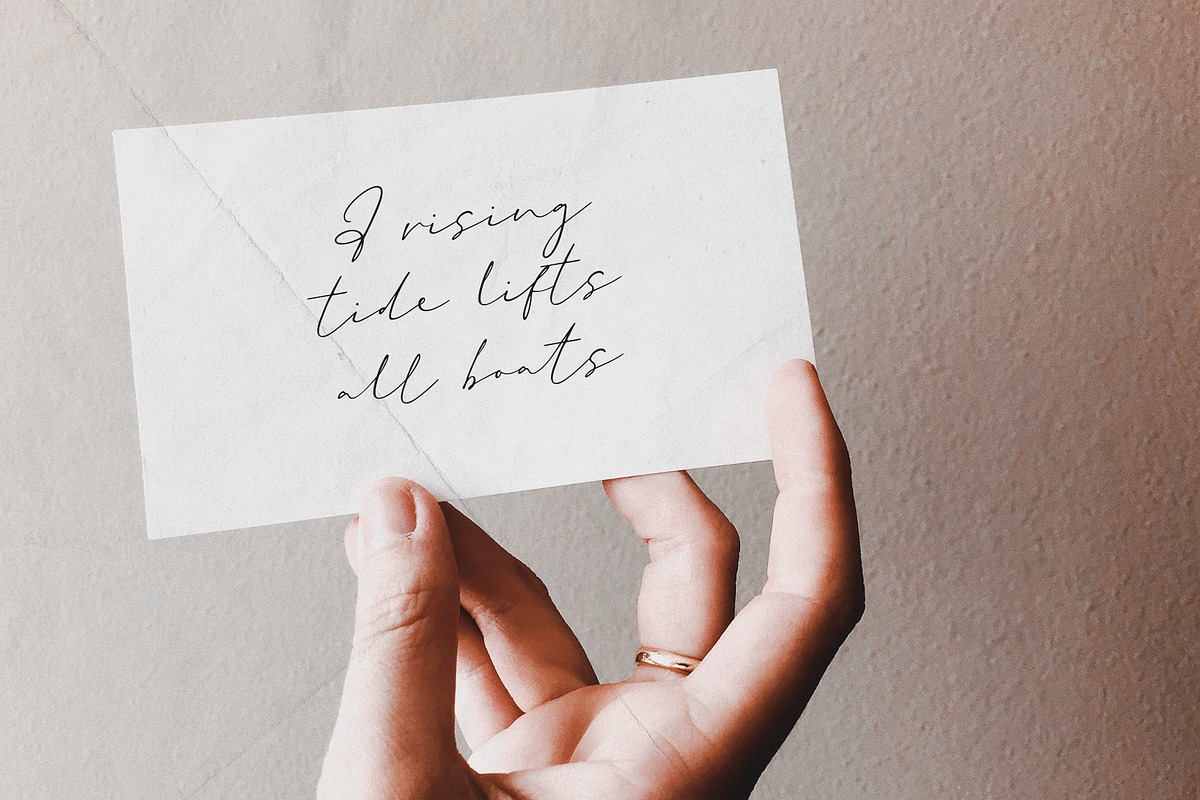 A rising
tide lifts
all boats